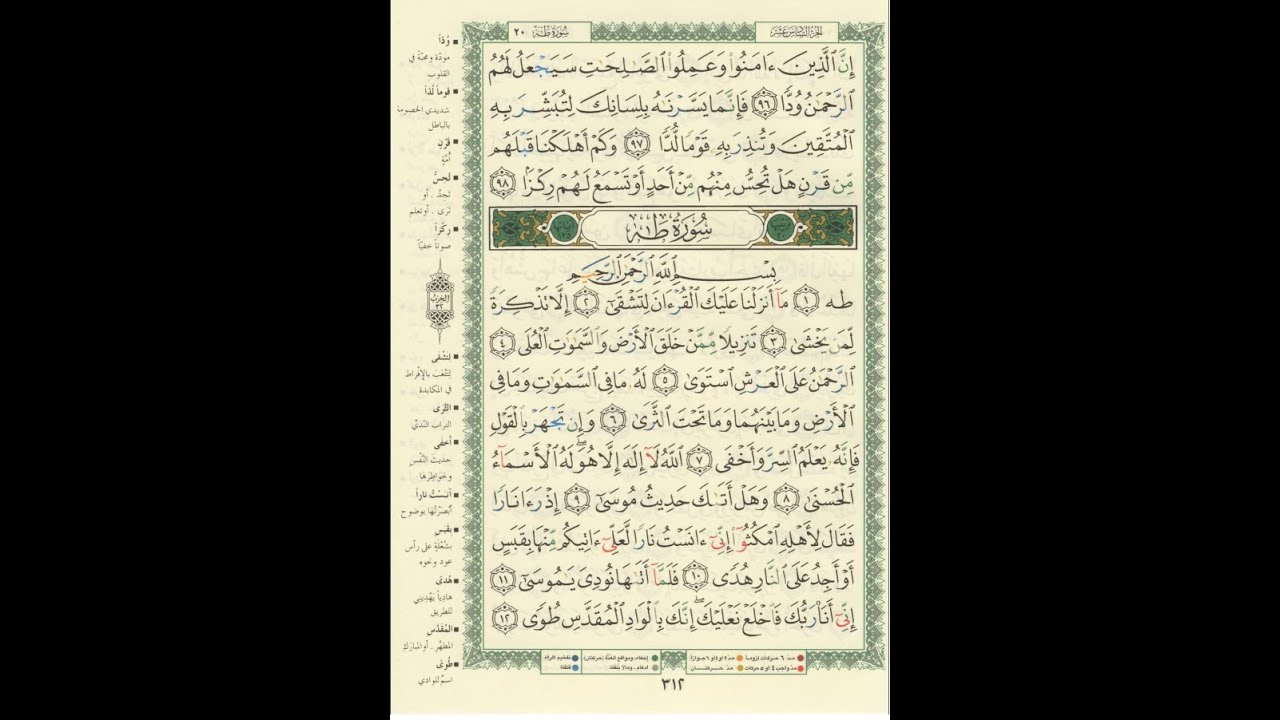 الجزء السادس عشر
سورة طه ٢٠
إِنَّ ٱلَّذِينَ ءَامَنُوا۟ وَعَمِلُوا۟ ٱلصَّٰلِحَٰتِ سَيَجْعَلُ لَهُمُ
ٱلرَّحْمَٰنُ وُدًّا ٩٦ فَإِنَّمَا يَسَّرْنَٰهُ بِلِسَانِكَ لِتُبَشِّرَ بِهِ
ٱلْمُتَّقِينَ وَتُنذِرَ بِهِۦ قَوْمًا لُّدًّا ٩٧ وَكَمْ أَهْلَكْنَا قَبْلَهُم
مِّن قَرْنٍ هَلْ تُحِسُّ مِنْهُم مِّنْ أَحَدٍ أَوْ تَسْمَعُ لَهُمْ رِكْزًا ٩٨
سُورَةُ طه
بِسْمِ ٱللَّهِ ٱلرَّحْمَٰنِ ٱلرَّحِيمِ
طه ١ مَآ أَنزَلْنَا عَلَيْكَ ٱلْقُرْءَانَ لِتَشْقَىٰٓ ٢ إِلَّا تَذْكِرَةً
لِّمَن يَخْشَىٰ ٣ تَنزِيلًا مِّمَّنْ خَلَقَ ٱلْأَرْضَ وَٱلسَّمَٰوَٰتِ ٱلْعُلَى ٤
ٱلرَّحْمَٰنُ عَلَى ٱلْعَرْشِ ٱسْتَوَىٰ ٥ لَهُۥ مَا فِى ٱلسَّمَٰوَٰتِ وَمَا فِى
ٱلْأَرْضِ وَمَا بَيْنَهُمَا وَمَا تَحْتَ ٱلثَّرَىٰ ٦ وَإِن تَجْهَرْ بِٱلْقَوْلِ
فَإِنَّهُۥ يَعْلَمُ ٱلسِّرَّ وَأَخْفَى ٧ ٱللَّهُ لَآ إِلَٰهَ إِلَّا هُوَ لَهُ ٱلْأَسْمَآءُ
ٱلْحُسْنَىٰ ٨ وَهَلْ أَتَىٰكَ حَدِيثُ مُوسَىٰٓ ٩ إِذْ رَءَا نَارًا
فَقَالَ لِأَهْلِهِ ٱمْكُثُوٓا۟ إِنِّىٓ ءَانَسْتُ نَارًا لَّعَلِّىٓ ءَاتِيكُم مِّنْهَا بِقَبَسٍ
أَوْ أَجِدُ عَلَى ٱلنَّارِ هُدًى ١٠ فَلَمَّآ أَتَىٰهَا نُودِىَ يَٰمُوسَىٰٓ ١١
إِنِّىٓ أَنَا۠ رَبُّكَ فَٱخْلَعْ نَعْلَيْكَ إِنَّكَ بِٱلْوَادِ ٱلْمُقَدَّسِ طُوًى ١٢
وُدّاً
مودّة ومحبّة في
القلوب
قوماً لُدّاً
شديدي الخصومة
بالباطل
قَرْنٍ
أُمّةٍ
تُحِسُّ
تجدُ . أو
تَرَى . أو تعلم
رِكْزاً
صوتاً خفيّاً
الحزب
٣٢
لِتشْقى
لِتَتْعَبَ بالإفراط
في المكابدة
الثَّرى
التراب النّديّ
أخفى
حديث النَّفْس
وخواطِرها
آنسْتُ ناراً
أبصرْتُها بوضوح
بقبَسٍ
بشُعْلةٍ على رأس
عود ونحوه
هُدىً
هادياً يَهْديني
للطريق
المُقدَّسِ
المطهَّرِ . أو المبارَكِ
طُوىً
اسمٌ للوادي
مدّ ٦ حركات لزوماً مدّ ٢ أو ٤ أو ٦ جوازاً إخفاء، ومواقع الغنّة (حركتان) تفخيم الراء
مدّ واجب ٤ أو ٥ حركات مدّ حركتان ادغام، وما لا يلفظ قلقلة
٣١٢